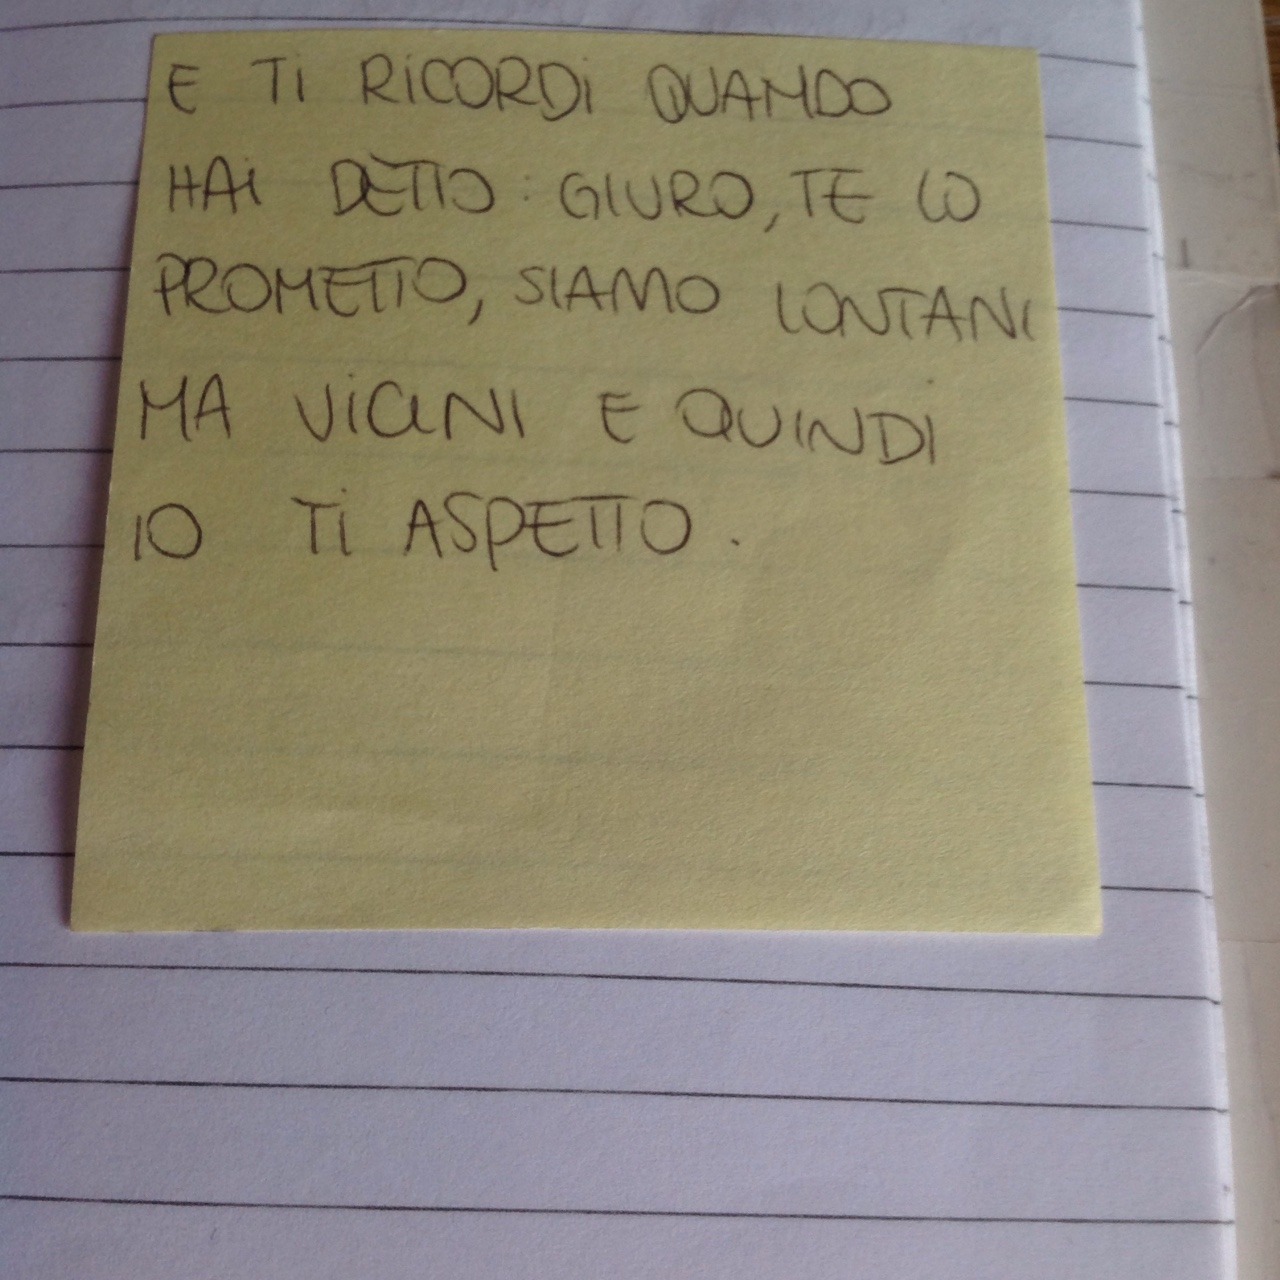 E Ti RiCORDi QUANDO
HAi DETTO : GIURO, TE LO
PROMETTO, SIAMO LONTANI
MA ViCINI E QUINDI
IO Ti ASPETTO.